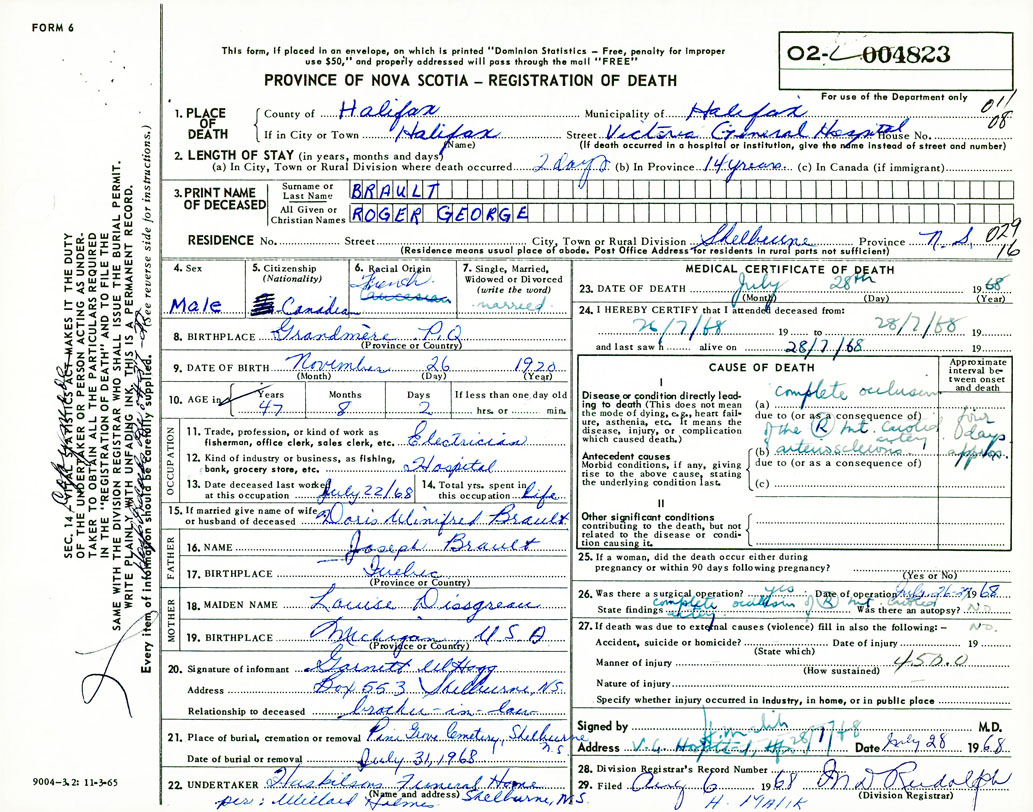 FORM 6
This form, if placed in an envelope, on which is printed "Dominion Statistics – Free, penalty for improper
use $50," and properly addressed will pass through the mail "FREE"
02-L 004823
PROVINCE OF NOVA SCOTIA – REGISTRATION OF DEATH
For use of the Department only
011
08
1. PLACE OF DEATH
County of Halifax Municipality of Halifax
If in City or Town Halifax Street Victoria General Hospital House No.
(Name) (If death occurred in a hospital or institution, give the name instead of street and number)
2. LENGTH OF STAY (in years, months and days)
(a) In City, Town or Rural Division where death occurred 2 days (b) In Province 14 years (c) In Canada (if immigrant)
3. PRINT NAME OF DECEASED
Surname or Last Name BRAULT
All Given or Christian Names ROGER GEORGE
RESIDENCE No. Street City, Town or Rural Division Shelburne Province N.S.
(Residence means usual place of abode. Post Office Address for residents in rural parts not sufficient)
029
16
4. Sex
Male
5. Citizenship (Nationality)
Canadian
6. Racial Origin
French
7. Single, Married, Widowed or Divorced (write the word)
married
8. BIRTHPLACE Grandmère P.Q.
(Province or Country)
9. DATE OF BIRTH November 26 1920
(Month) (Day) (Year)
10. AGE in Years Months Days If less than one day old
47 8 2 hrs. or min.
OCCUPATION
11. Trade, profession, or kind of work as
fisherman, office clerk, sales clerk, etc. Electrician
12. Kind of industry or business, as fishing,
bank, grocery store, etc. Hospital
13. Date deceased last worked
at this occupation July 22/68
14. Total yrs. spent in
this occupation Life
15. If married give name of wife
or husband of deceased Doris Winifred Brault
FATHER
16. NAME Joseph Brault
17. BIRTHPLACE Quebec
(Province or Country)
MOTHER
18. MAIDEN NAME Louise
19. BIRTHPLACE Michigan, U.S.A
(Province or Country)
20. Signature of informant Garnett
Address Box 553 Shelburne, N.S.
Relationship to deceased brother-in-law
21. Place of burial, cremation or removal Pine Grove Cemetery, Shelburne N.S.
Date of burial or removal July 31, 1968
22. UNDERTAKER Funeral Home
(Name and address) Shelburne, N.S.
per: Willard Holmes
MEDICAL CERTIFICATE OF DEATH
23. DATE OF DEATH July 28th 1968
(Month) (Day) (Year)
24. I HEREBY CERTIFY that I attended deceased from:
26/7/68 19 to 28/7/68 19
and last saw h alive on 28/7/68
CAUSE OF DEATH
Approximate interval between onset and death
I
Disease or condition directly leading to death (This does not mean
the mode of dying, e.g., heart failure, asthenia, etc. It means the
disease, injury, or complication
which caused death.)
(a) complete occlusion
due to (or as a consequence of)
of the R Int. Carotid artery
four days approx.
Antecedent causes
Morbid conditions, if any, giving
rise to the above cause, stating
the underlying condition last.
(b) arteriosclerosis
due to (or as a consequence of)
(c)
II
Other significant conditions
contributing to the death, but not
related to the disease or condition causing it.
25. If a woman, did the death occur either during
pregnancy or within 90 days following pregnancy?
(Yes or No)
26. Was there a surgical operation? yes Date of operation July 26 1968
State findings complete occlusion of R Int. Carotid artery Was there an autopsy? NO
27. If death was due to external causes (violence) fill in also the following:– no.
Accident, suicide or homicide? Date of injury 19
(State which)
Manner of injury 450.0
(How sustained)
Nature of injury
Specify whether injury occurred in industry, in home, or in public place
Signed by 28/7/68 M.D.
Address V.G. Hospital, Hfx Date July 28 1968
28. Division Registrar's Record Number
29. Filed Aug 6 1968 M D Rudolph
(Division Registrar)
SEC. 14 – VITAL STATISTICS ACT MAKES IT THE DUTY
OF THE UNDERTAKER OR PERSON ACTING AS UNDER-
TAKER TO OBTAIN ALL THE PARTICULARS REQUIRED
IN THE "REGISTRATION OF DEATH" AND TO FILE THE
SAME WITH THE DIVISION REGISTRAR WHO SHALL ISSUE THE BURIAL PERMIT.
WRITE PLAINLY, WITH UNFADING INK, THIS IS A PERMANENT RECORD.
Every item of information should be carefully supplied. (See reverse side for instructions.)
9004-3.2: 11-3-65